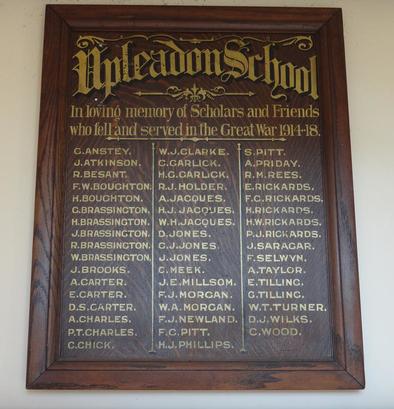 Upleadon School
In loving memory of Scholars and Friends
who fell and served in the Great War 1914-18.
G. ANSTEY.
J. ATKINSON.
R. BESANT.
F. W. BOUGHTON.
H. BOUGHTON.
G. BRASSINGTON.
H. BRASSINGTON.
J. BRASSINGTON.
R. BRASSINGTON.
W. BRASSINGTON.
J. BROOKS.
A. CARTER.
E. CARTER.
D. S. CARTER.
A. CHARLES.
P. T. CHARLES.
C. CHICK.
W. J. CLARKE.
C. GARLICK.
H. G. GARLICK.
R. J. HOLDER.
A. JACQUES.
H. J. JACQUES.
W. H. JACQUES.
D. JONES.
C. J. JONES.
J. JONES.
C. MEEK.
J. E. MILLSOM.
F. J. MORGAN.
W. A. MORGAN.
F. J. NEWLAND.
F. C. PITT.
H. J. PHILLIPS.
S. PITT.
A. PRIDAY.
R. M. REES.
E. RICKARDS.
F. C. RICKARDS.
H. RICKARDS.
H. W. RICKARDS.
P. J. RICKARDS.
J. SARAGAR.
F. SELWYN.
A. TAYLOR.
E. TILLING.
G. TILLING.
W. T. TURNER.
D. J. WILKS.
C. WOOD.